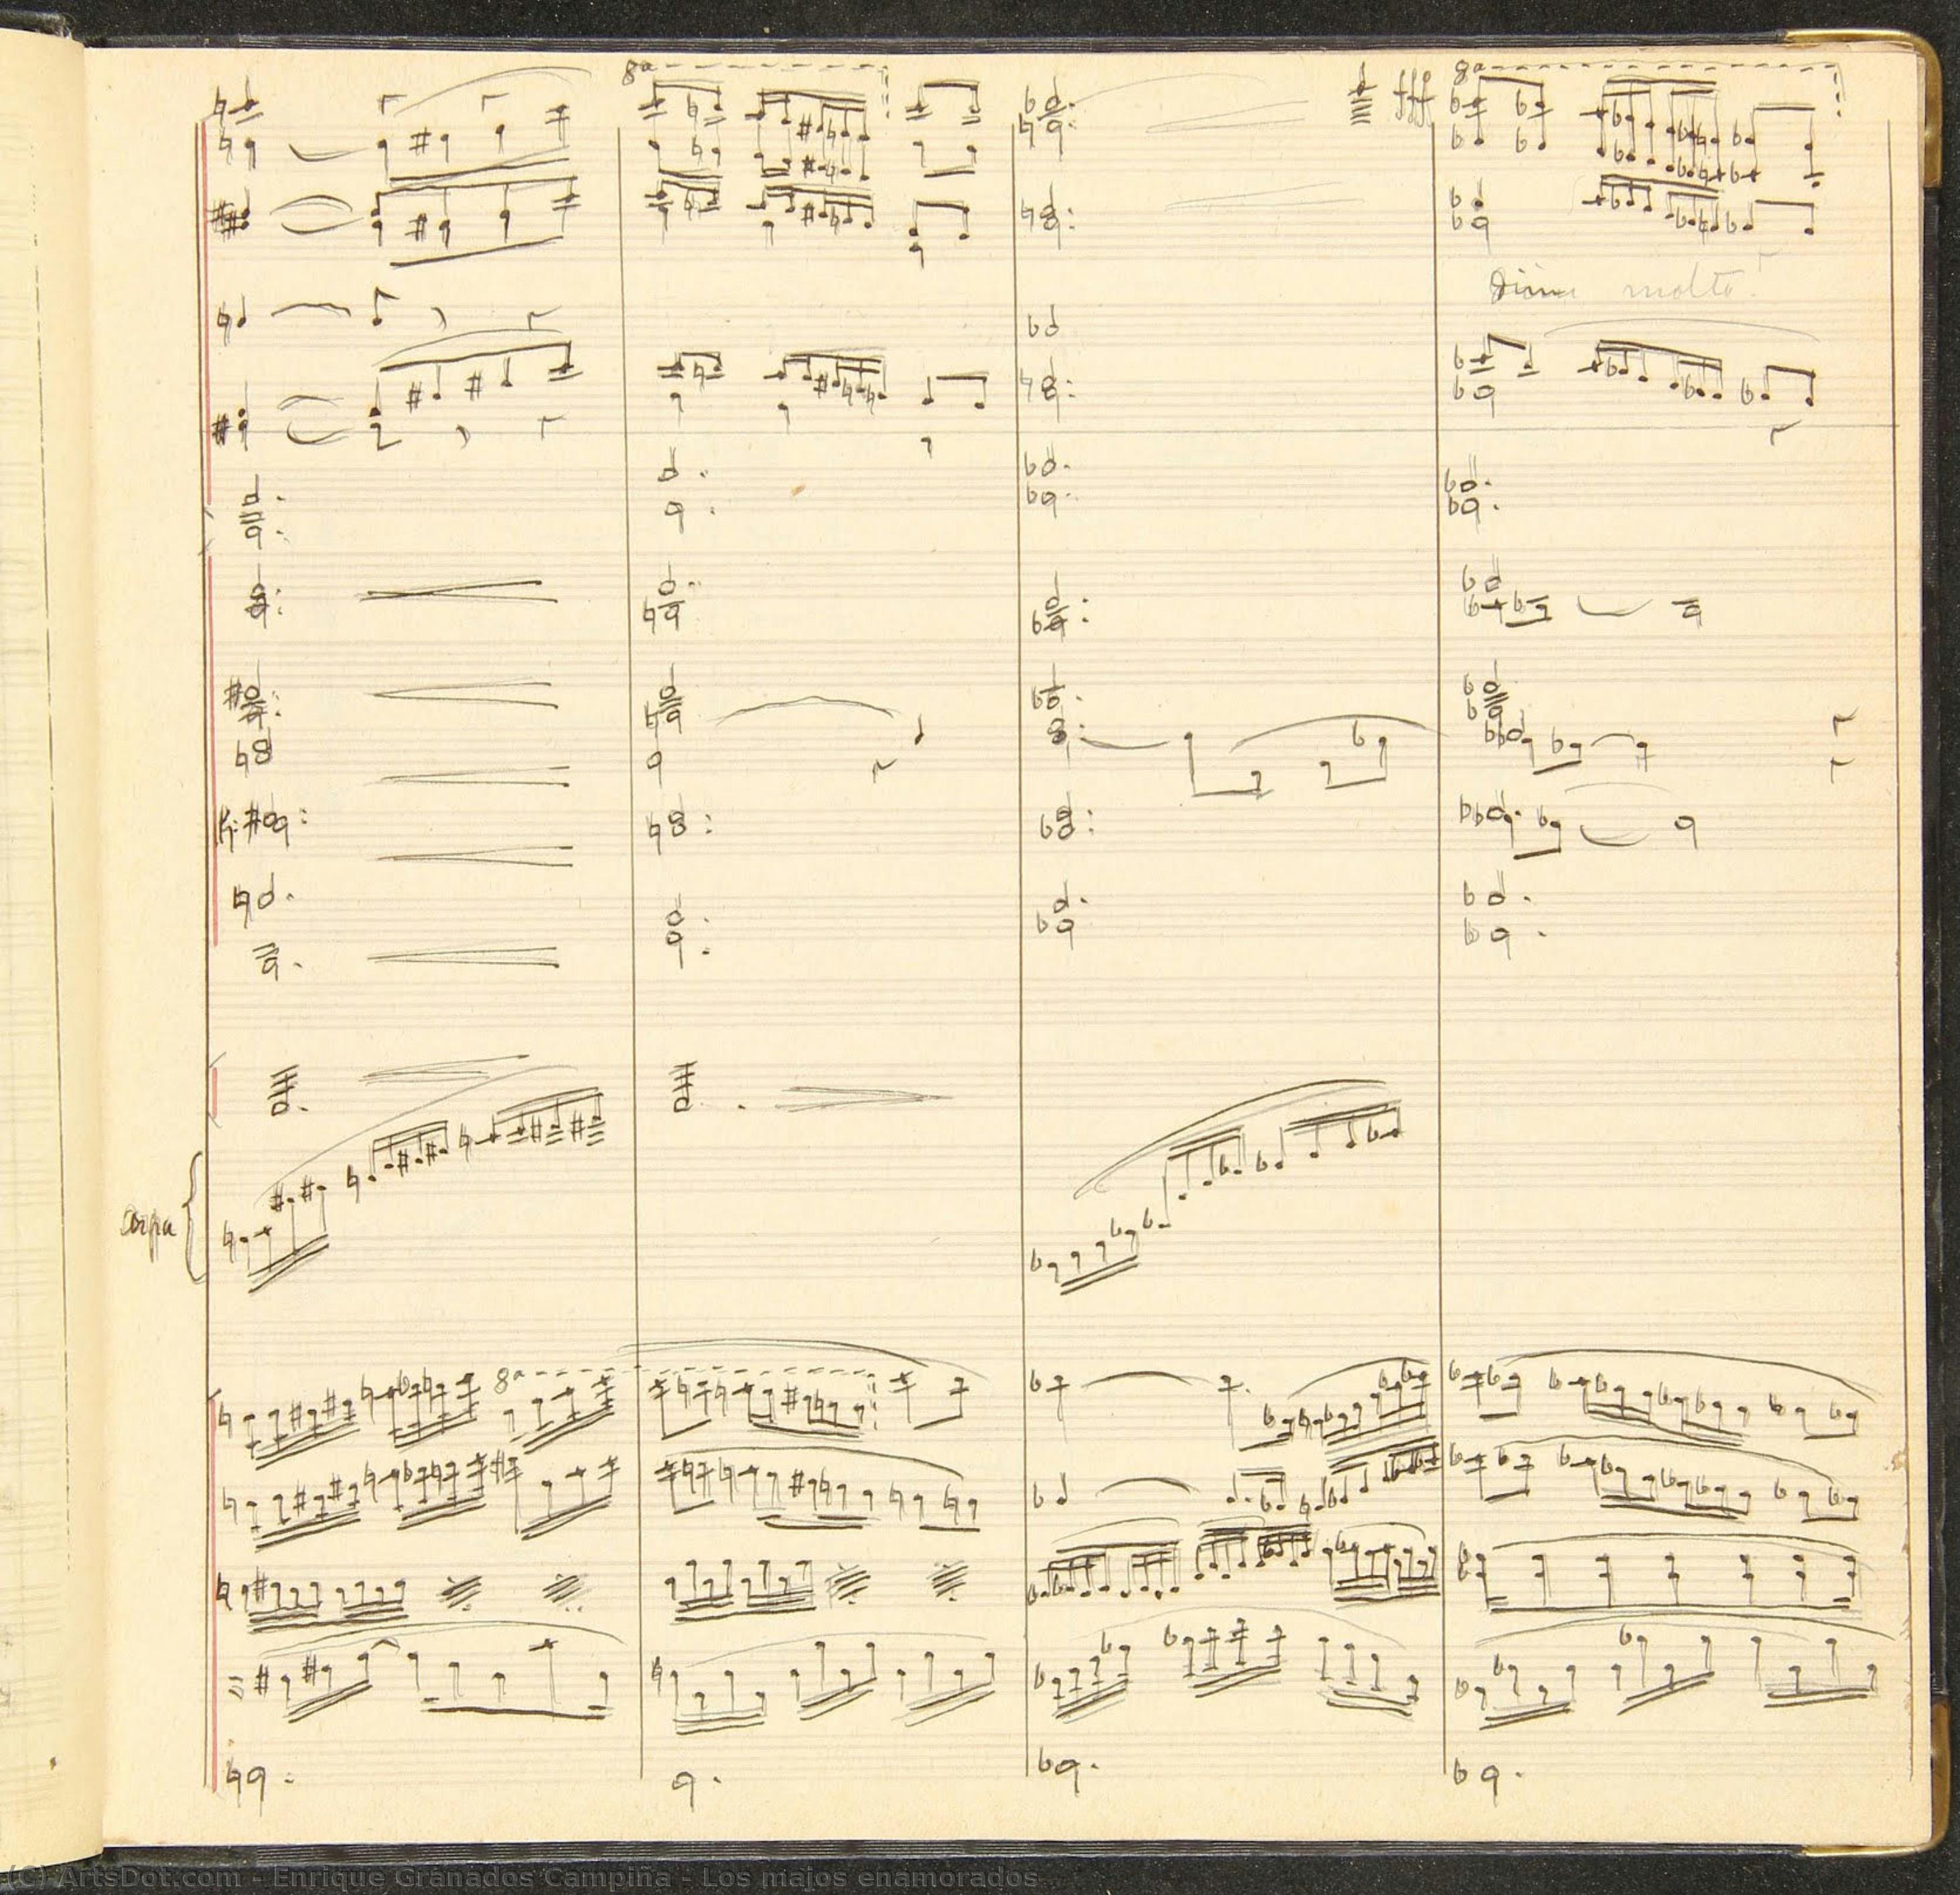 8ª
fff
8ª
Dim molto
arpa
8ª
(C) ArtsDot.com - Enrique Granados Campiña - Los majos enamorados